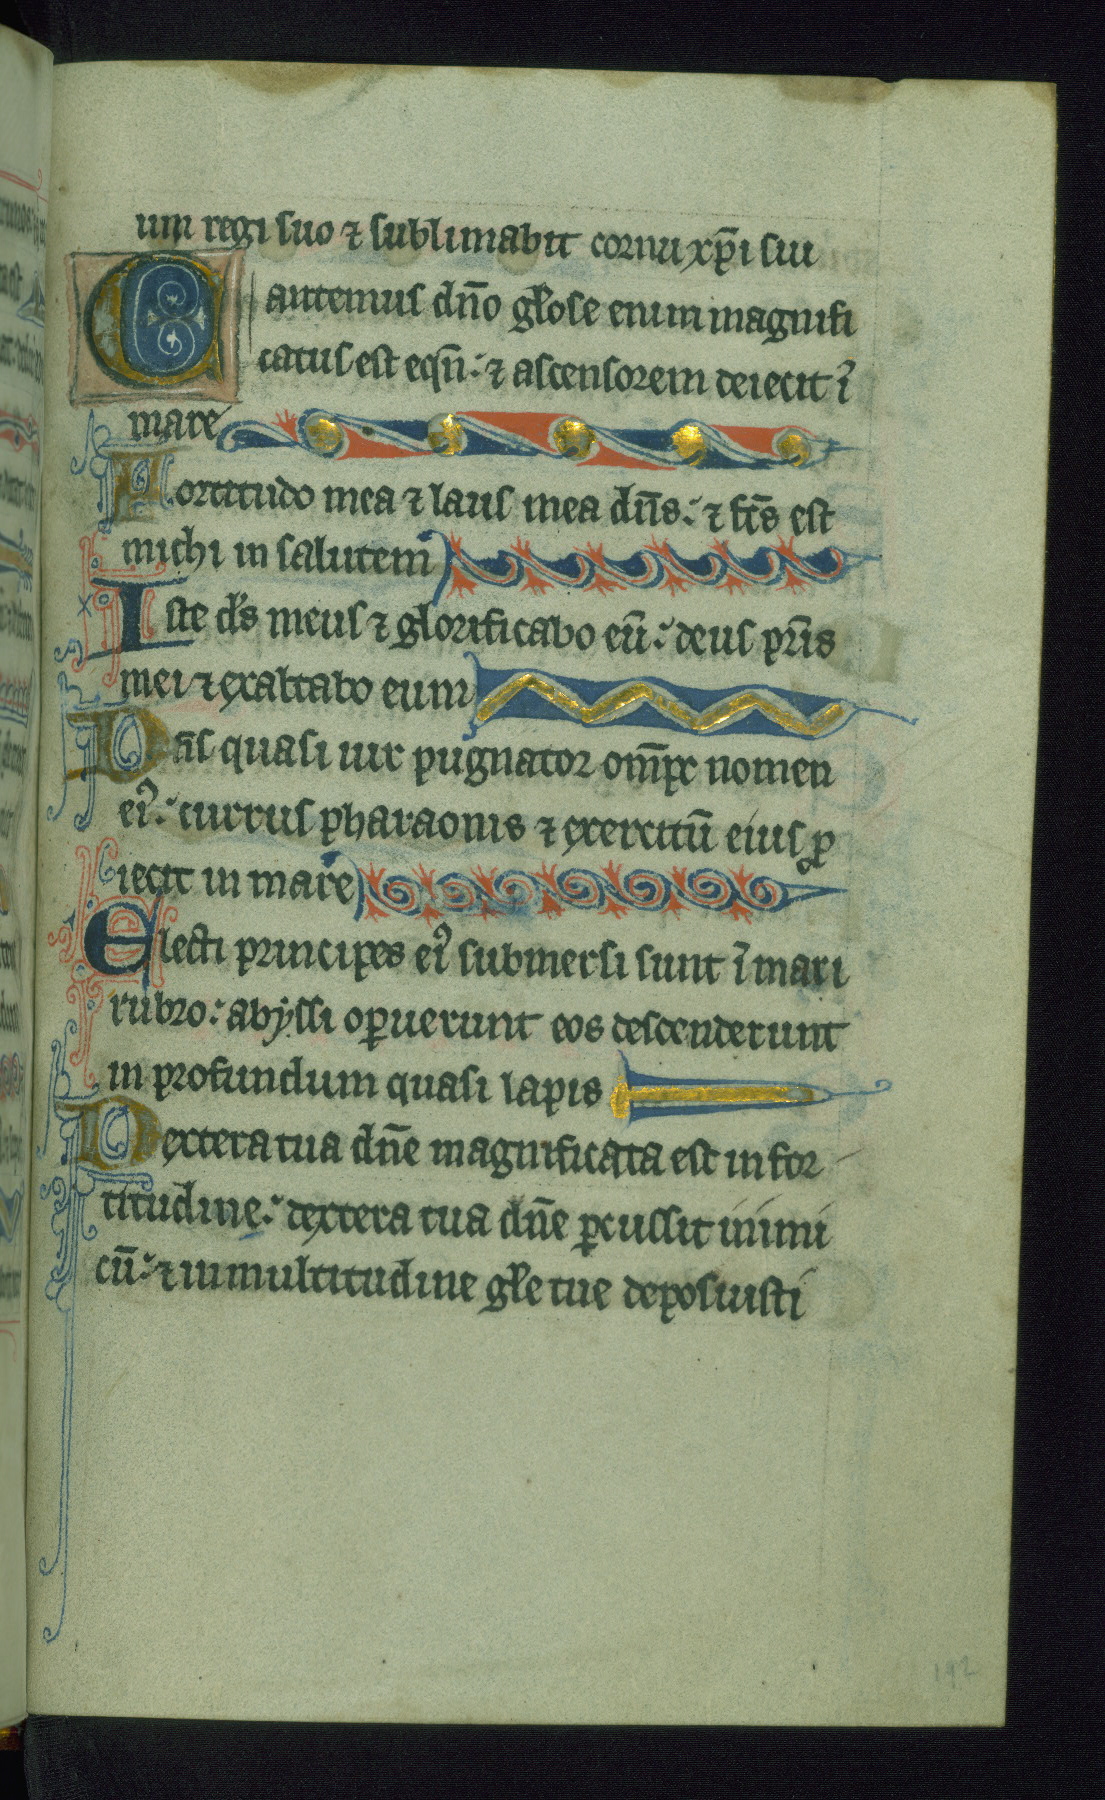 um regi suo ⁊ sublimabit cornu xp̄i sui
Cantemus dn̄o glōse enim magnifi
catus est eqū: ⁊ ascensorem deiecit ī
mare
Fortitudo mea ⁊ laus mea dn̄s: ⁊ fc̄s est
michi in salutem
Iste ds̄ meus ⁊ glorificabo eū: deus pr̄is
mei ⁊ exaltabo eum
Dn̄s quasi uir pugnator om̄ps nomen
eiꝰ: currus pharaonis ⁊ exercitū eius ꝓ
iecit in mare
Electi principes eiꝰ submersi sunt ī mari
rubro: abyssi oꝑuerunt eos descenderunt
in profundum quasi lapis
Dextera tua dn̄e magnificata est in for
titudine: dextera tua dn̄e ꝑcussit inimi
cū: ⁊ in multitudine gl̄e tue deposuisti
192